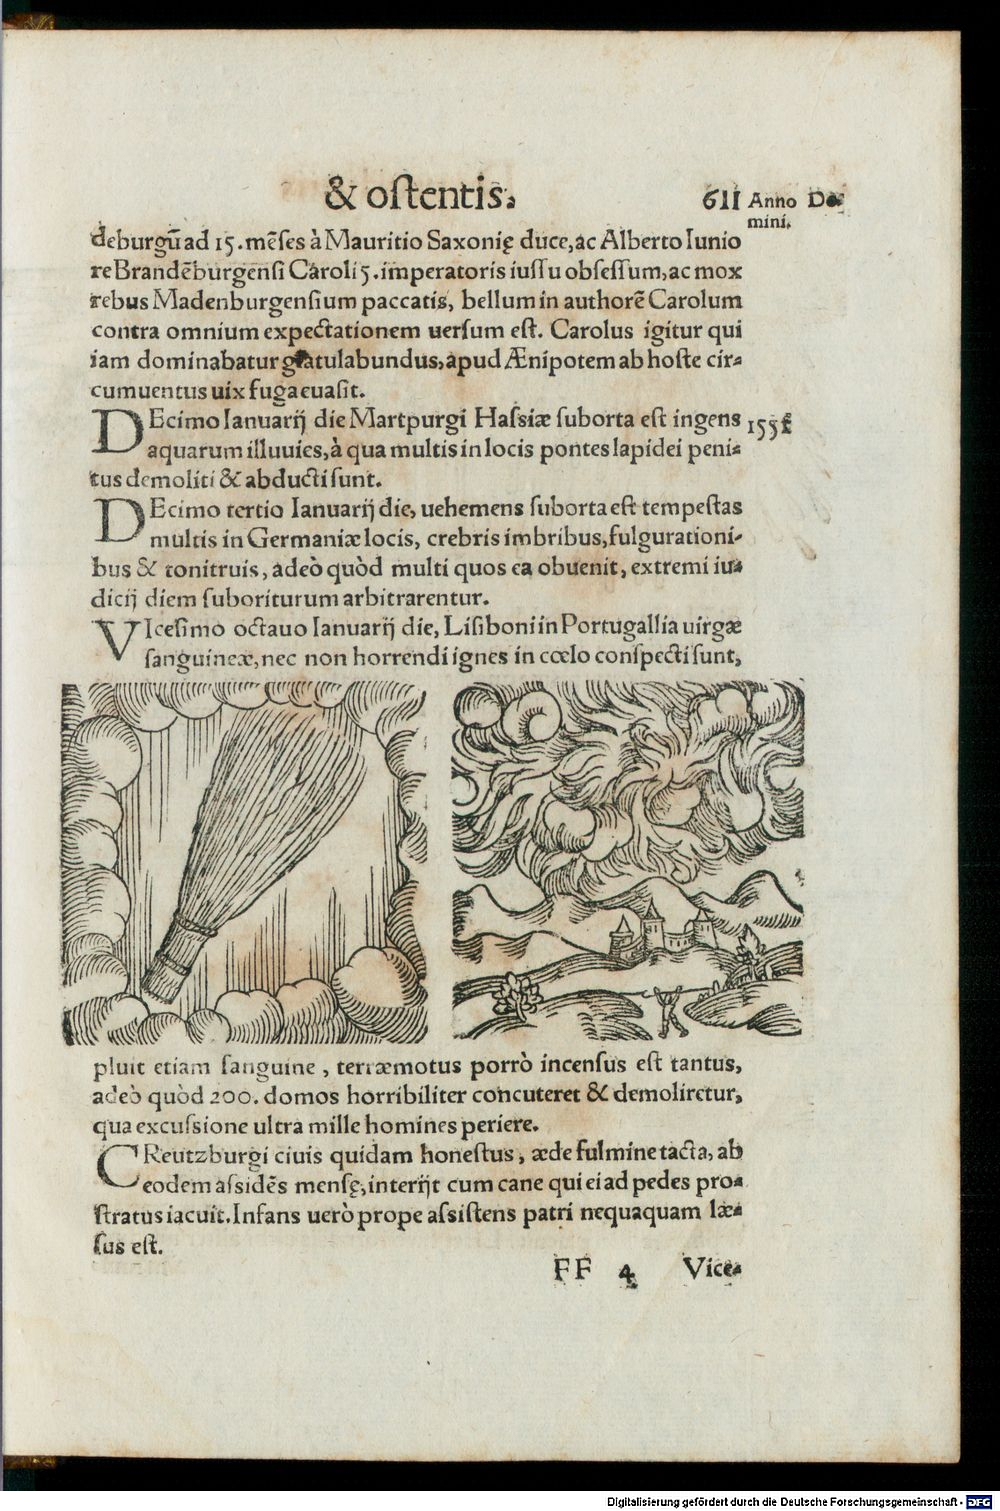 & ostentis.
611 Anno Do-
mini.
deburgū ad 15. mēses à Mauritio Saxonię duce, ac Alberto Iunio
re Brandēburgensi Caroli 5. imperatoris iussu obsessum, ac mox
rebus Madenburgensium paccatis, bellum in authorē Carolum
contra omnium expectationem uersum est. Carolus igitur qui
iam dominabatur gratulabundus, apud Ænipotem ab hoste cir-
cumuentus uix fuga euasit.
DEcimo Ianuarij die Martpurgi Hassiæ suborta est ingens
aquarum illuuies, à qua multis in locis pontes lapidei peni-
tus demoliti & abducti sunt.
DEcimo tertio Ianuarij die, uehemens suborta est tempestas
multis in Germaniæ locis, crebris imbribus, fulgurationi-
bus & tonitruis, adeò quòd multi quos ea obuenit, extremi iu-
dicij diem suboriturum arbitrarentur.
VIcesimo octauo Ianuarij die, Lisiboni in Portugallia uirgæ
sanguineæ, nec non horrendi ignes in cœlo conspecti sunt,
pluit etiam sanguine, terræmotus porrò incensus est tantus,
adeò quòd 200. domos horribiliter concuteret & demoliretur,
qua excussione ultra mille homines periere.
CReutzburgi ciuis quidam honestus, æde fulmine tacta, ab
eodem assidēs mensę, interijt cum cane qui ei ad pedes pro-
stratus iacuit. Infans uerò prope assistens patri nequaquam læ-
sus est.
FF 4 Vice-
Digitalisierung gefördert durch die Deutsche Forschungsgemeinschaft - DFG